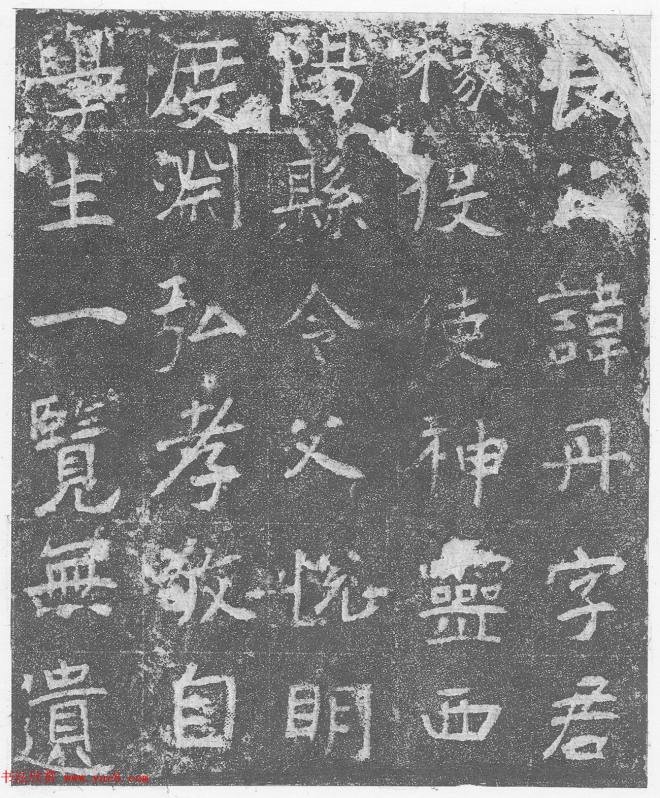 良公諱丹字君
楊伇使神靈西
陽縣令父悅明
度淵弘孝敬自
學生一覽無遺
书法欣赏 www.yac8.com